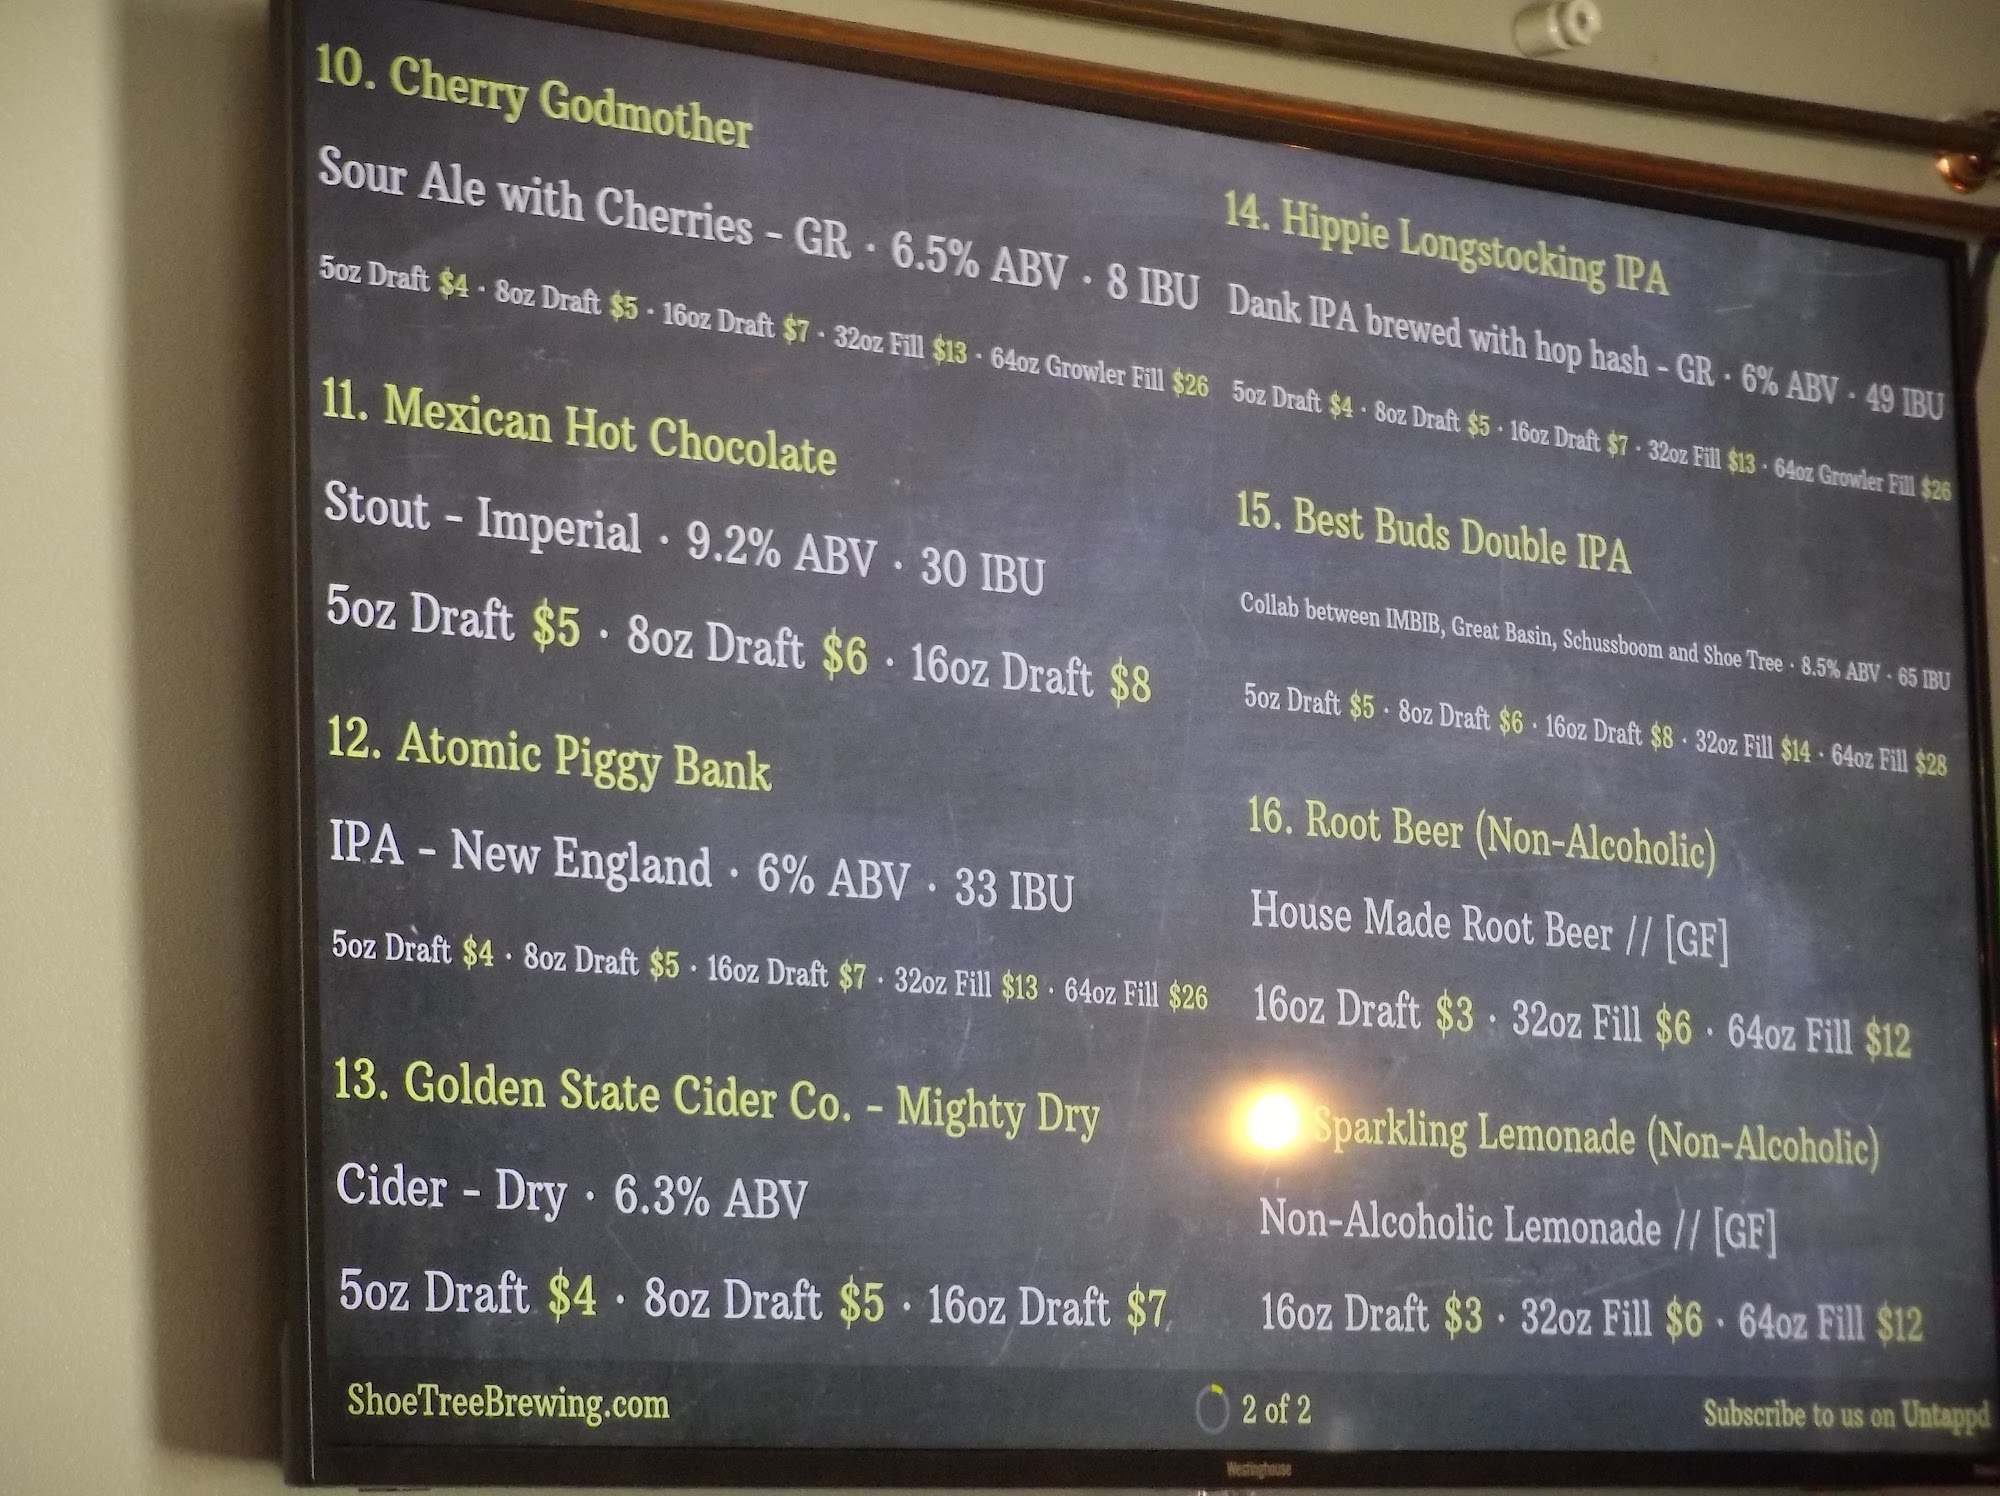 10. Cherry Godmother
Sour Ale with Cherries - GR · 6.5% ABV · 8 IBU
5oz Draft $4 · 8oz Draft $5 · 16oz Draft $7 · 32oz Fill $13 · 64oz Growler Fill $26
11. Mexican Hot Chocolate
Stout - Imperial · 9.2% ABV · 30 IBU
5oz Draft $5 · 8oz Draft $6 · 16oz Draft $8
12. Atomic Piggy Bank
IPA - New England · 6% ABV · 33 IBU
5oz Draft $4 · 8oz Draft $5 · 16oz Draft $7 · 32oz Fill $13 · 64oz Fill $26
13. Golden State Cider Co. - Mighty Dry
Cider - Dry · 6.3% ABV
5oz Draft $4 · 8oz Draft $5 · 16oz Draft $7
14. Hippie Longstocking IPA
Dank IPA brewed with hop hash - GR · 6% ABV · 49 IBU
5oz Draft $4 · 8oz Draft $5 · 16oz Draft $7 · 32oz Fill $13 · 64oz Growler Fill $26
15. Best Buds Double IPA
Collab between IMBIB, Great Basin, Schussboom and Shoe Tree · 8.5% ABV · 65 IBU
5oz Draft $5 · 8oz Draft $6 · 16oz Draft $8 · 32oz Fill $14 · 64oz Fill $28
16. Root Beer (Non-Alcoholic)
House Made Root Beer // [GF]
16oz Draft $3 · 32oz Fill $6 · 64oz Fill $12
Sparkling Lemonade (Non-Alcoholic)
Non-Alcoholic Lemonade // [GF]
16oz Draft $3 · 32oz Fill $6 · 64oz Fill $12
ShoeTreeBrewing.com
2 of 2
Subscribe to us on Untappd
Westinghouse